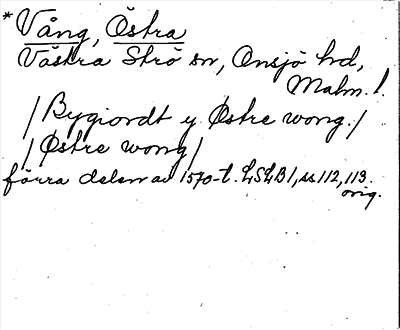 * Vång, Östra
Västra Strö sn, Onsjö hd,
Malm. l.
/Bygiordt y Østre wong./
/Østre wong/
förra delen av 1570-t. LSLB 1, ss. 112, 113.
orig.